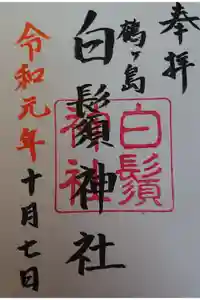 奉拝
鶴ヶ島
白鬚神社
白鬚神社
令和元年十月七日